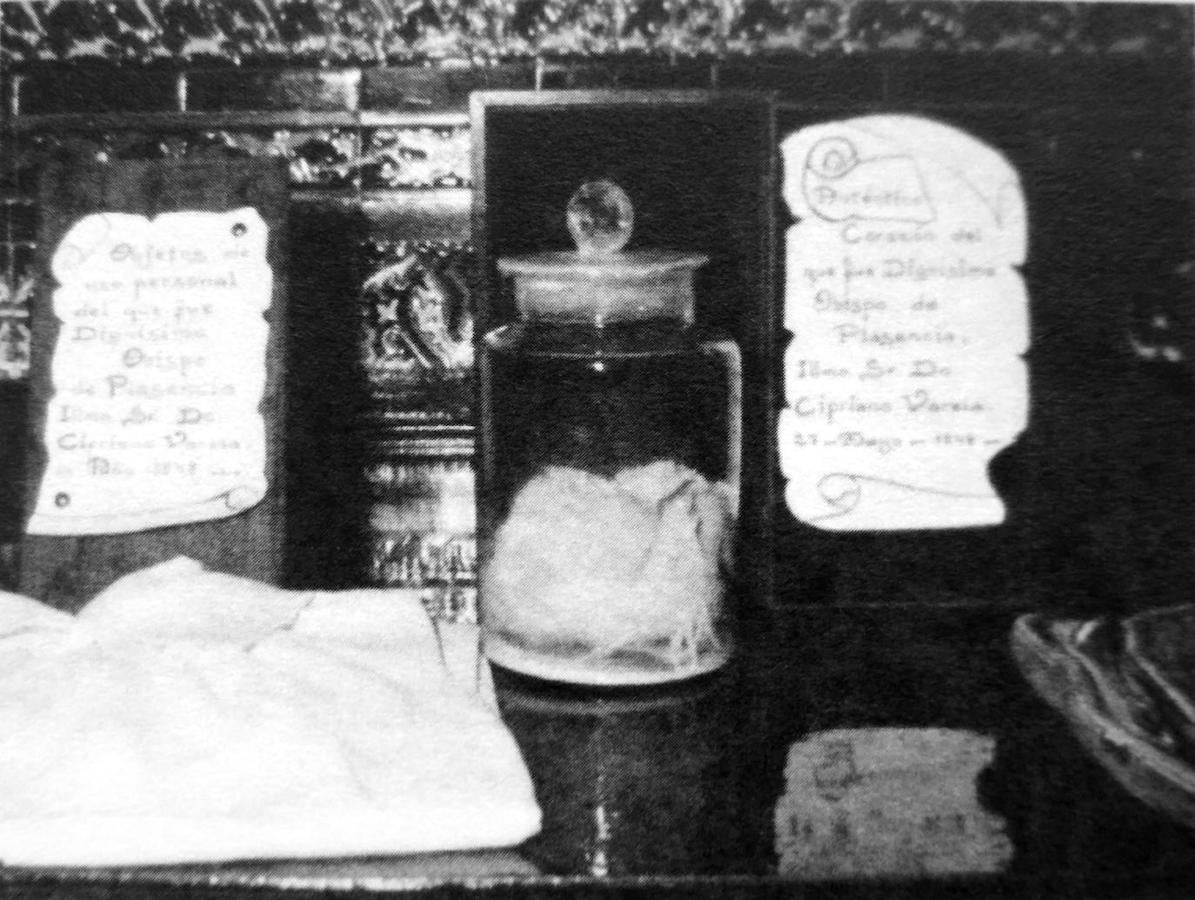 Objetos de
uso personal
del que fue
Dignisimo
Obispo
de Plasencia
Ilmo Sr. Do
Cipriano Varela.
1848
Autentico
Corazón del
que fue Dignisimo
Obispo de
Plasencia,
Ilmo Sr. Do
Cipriano Varela
27 - Mayo - 1848 -